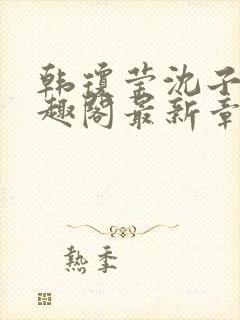 韩琼莹沈子
趣阁最新章
热季